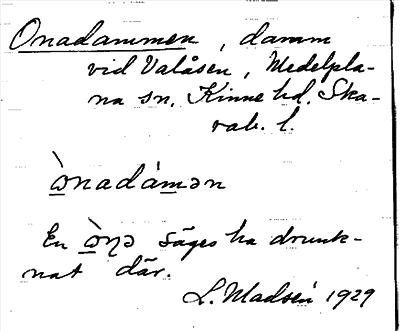 Onadammen, damm
vid Valåsen, Medelpla-
na sn, Kinne hd. Ska-
rab. l.
ὼnadámən
En ὼṇə säges ha drunk-
nat där.
L. Madsén 1929